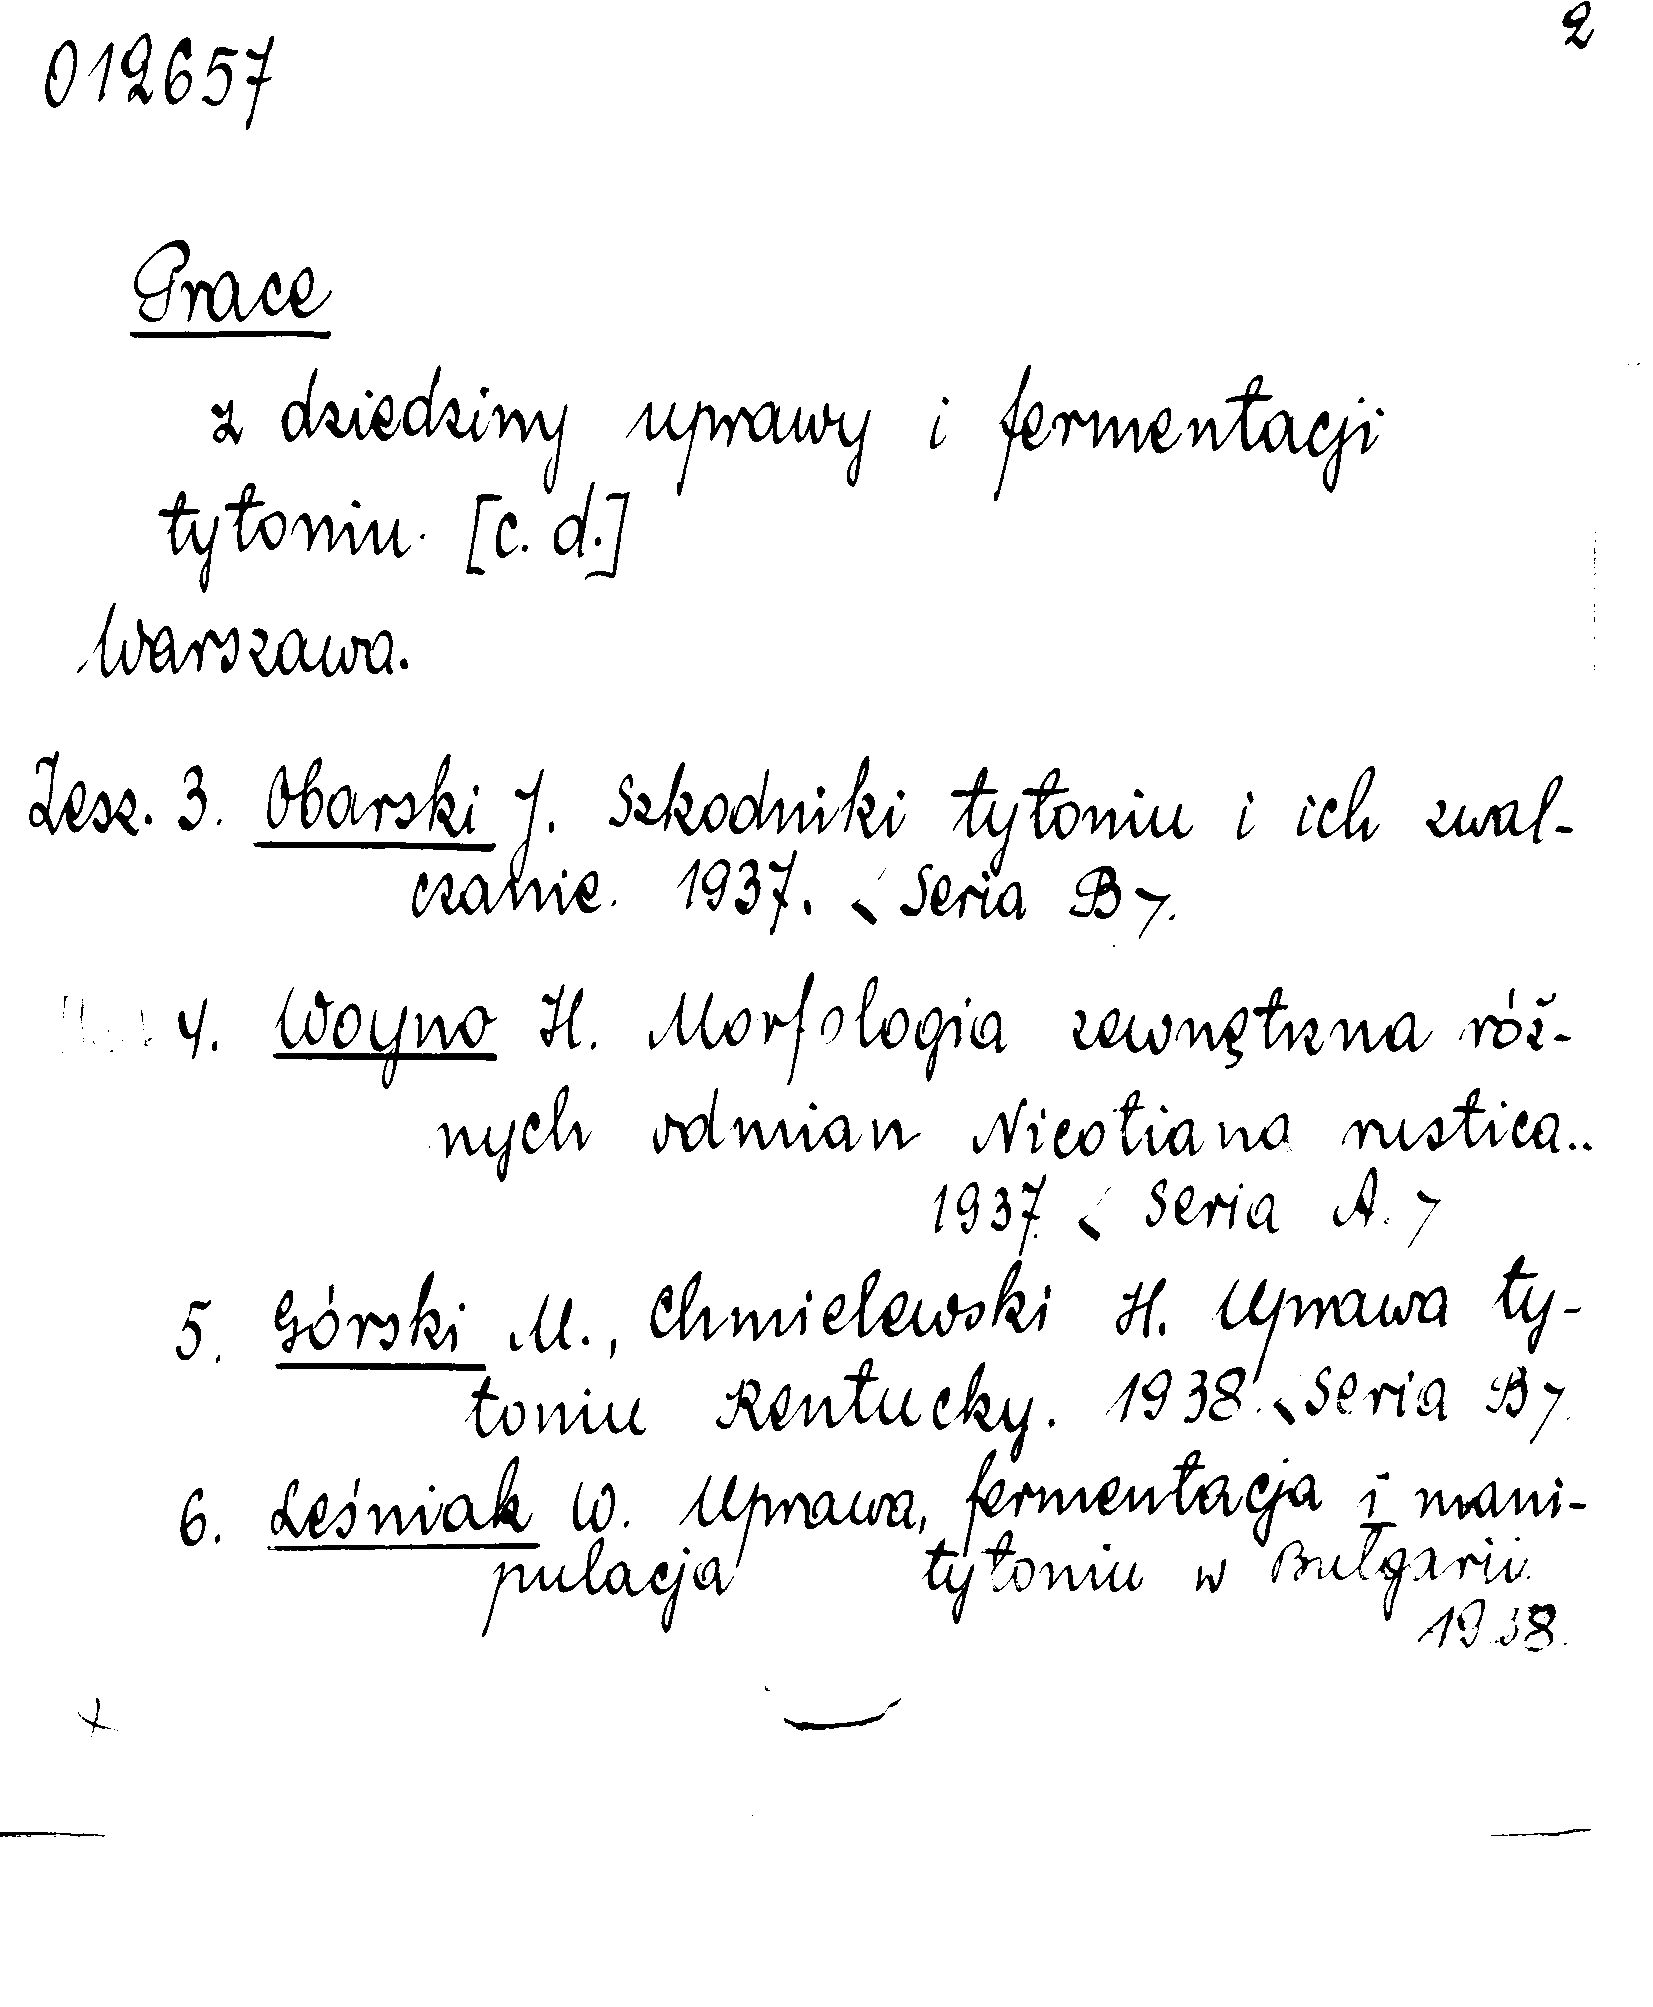 2
012657
Prace
z dziedziny uprawy i fermentacji
tytoniu. [c. d.]
Warszawa.
Zesz. 3. Obarski J. Szkodniki tytoniu i ich zwal-
czanie. 1937. < Seria B >.
4. Woyno H. Morfologia zewnętrzna róż-
nych odmian Nicotiana rustica..
1937. < Seria A. >
5. Górski M., Chmielewski H. Uprawa ty-
toniu Kentucky. 1938. < Seria B >.
6. Leśniak W. Uprawa, fermentacja i mani-
pulacja tytoniu w Bułgarii.
1938.